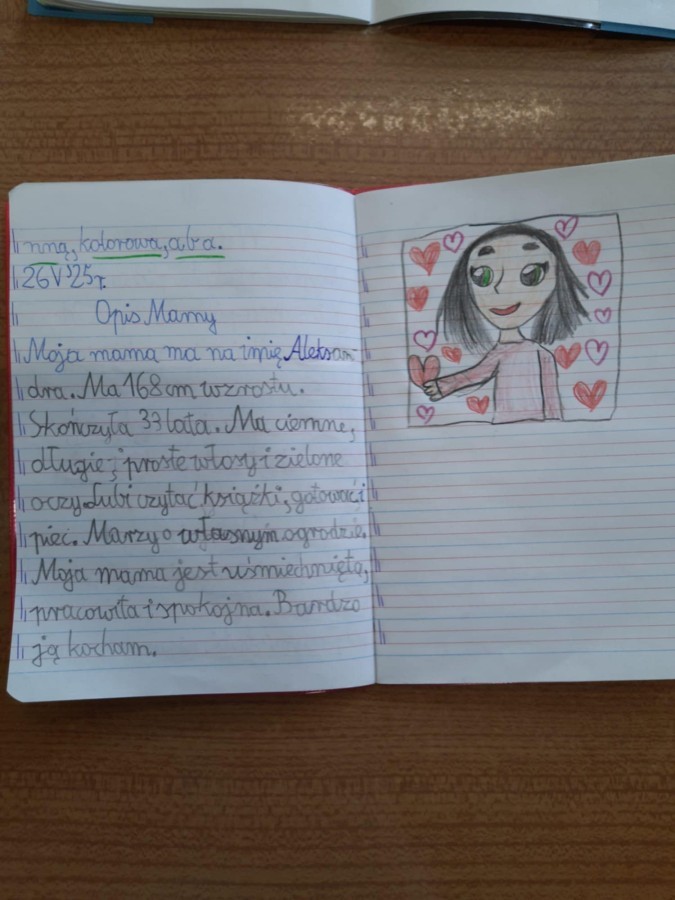 nną, kolorowa, aba.
26V'25r.
Opis Mamy
Moja mama ma na imię Aleksan
dra. Ma 168cm wzrostu.
Skończyła 33 lata. Ma ciemne,
długie, proste włosy i zielone
oczy. Lubi czytać książki, gotować i
piec. Marzy o własnym ogrodzie.
Moja mama jest uśmiechnięta,
pracowita i spokojna. Bardzo
ją kocham.